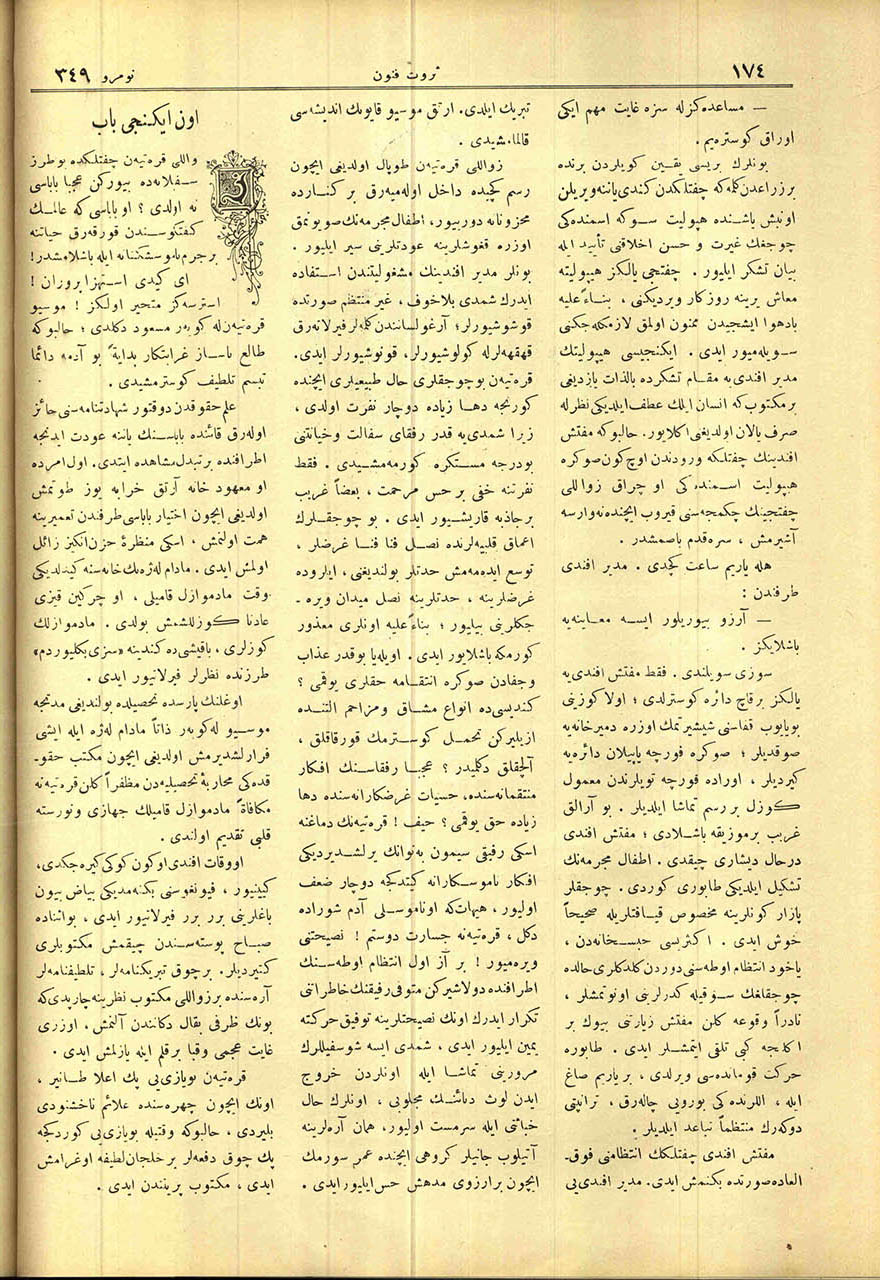 ١٧٤
ثروت فنون
نومرو ٣٤٩
— مساعده‌كزله سزه غايت مهم ايكى
اوراق كوستره‌يم .
بونلرك بريسى يقين كويلردن برنده
برزراعدن كلمه كه چفتلكدن كندى ياننه ويريلن
اونبش ياشنده هيپوليت سوكه اسمنده كى
چوجغك غيرت و حسن اخلاقنى تأييد ايله
بيان تشكر ايليور . چفتجى يالكز هيپوليته
معاش يرينه روزكار ويرديكنى ، بناءً عليه
بادهوا ايشجيدن ممنون اولمق لازمكله‌جكنى
سويله‌ميور ايدى . ايكنجيسى هيپوليتك
مدير افندى‌يه مقام تشكرده بالذات يازديغى
بر مكتوب كه انسان ايلك عطف ايلديكى نظرله
صرف يالان اولديغنى اكلايور. حالبوكه مفتش
افندينك چفتلكه ورودندن اوچ كون صوكره
هيپوليت اسمنده كى او چراق زواللى
چفتجينك چكمجه‌سنى قيروب ايچنده نه وارسه
آشيرمش ، سره‌قدم باصمشدر .
هله ياريم ساعت كچدى . مدير افندى
طرفندن :
— آرزو بيوريلور ايسه معاينه‌يه
باشلايكز .
سوزى سويلندى . فقط مفتش افندى‌يه
يالكز برقاچ دائره كوسترلدى ؛ اولا كوزينى
بويايوب قفاسنى شيشيرتمك اوزره دميرخانه‌يه
صوقديلر ؛ صوكره فورچه ياپيلان دائره‌يه
كيرديلر ، اوراده فورچه تويلرندن معمول
كوزل بر رسم تماشا ايلديلر . بو آرالق
غريب برموزيقه باشلادى ؛ مفتش افندى
درحال ديشارى چيقدى . اطفال مجرمه‌نك
تشكيل ايلديكى طابورى كوردى . چوجقلر
پازار كونلرينه مخصوص قيافتلريله صحيحاً
خوش ايدى . اكثريسى حبسخانه‌دن ،
ياخود انتظام اوطه‌سنى دوردن كلدكلرى حالده
چوجقلغك سوقيله كدرلرينى اونوتمشلر ،
نادراً وقوعه كلن مفتش زيارتنى بيوك بر
اكلنجه كبى تلقى ايتمشلر ايدى . طابوره
حركت قومانده‌سى ويرلدى ، برياريم صاغ
ايله ، اللرنده كى بورويى چاله‌رق ، ترانپتى
دوكه‌رك منتظماً تباعد ايلديلر .
مفتش افندى چفتلكك انتظامنى فوق‌
العاده صورتده بكنمش ايدى. مدير افندى‌يى
تبريك ايلدى. ارتق موسيو قايونك انديشه‌سى
قالمامشيدى .
زواللى قره‌تيه‌ن طوپال اولديغى ايچون
رسم كچيده داخل اوله‌ميه‌رق بر كنارده
محزونانه دوربيور، اطفال مجرمه‌نك صويونمق
اوزره قغوشلرينه عودتلرينى سير ايليور .
بونلر مدير افندينك مشغوليتندن استفاده
ايدرك شمدى بلاخوف ، غير منتظم صورتده
قوشوشيورلر؛ آرغو لسانندن كلمه‌لر فيرلاته‌رق
قهقهه‌لرله كولوشيورلر، قونوشيورلر ايدى.
قره‌تيه‌ن بوچوجقلرى حال طبيعيلرى ايچنده
كورنجه دها زياده دوچار نفرت اولدى ،
زيرا شمدى‌يه قدر رفقاى سفالت وخيانتنى
بودرجه مستكره كورمه‌مشيدى . فقط
نفرتنه خفى بر حس مرحمت ، بعضاً غريب
برجاذبه قاريشيور ايدى . بو چوجقلرك
اعماق قلبيه‌لرنده نصل فنا فنا غرضلر ،
توسع ايده‌مه‌مش حدتلر بولنديغنى ، ايلروده
غرضلرينه ، حدتلرينه نصل ميدان ويره‌-
جكلرينى بيليور ؛ بناءً عليه اونلرى معذور
كورمكه باشلايور ايدى. اويله‌يا بوقدر عذاب
وجفادن صوكره انتقامه حقلرى يوقمى ؟
كنديسى‌ده انواع مشاق ومزاحم التنده
ازيليركن تحمل كوسترمك قورقاقلق ،
آلچقلق دكلميدر ؟ عجبا رفقاسنك افكار
منتقمانه‌سنده، حسيات غرضكارانه‌سنده دها
زياده حق يوقمى ؟ حيف ! قره‌تيه‌نك دماغنه
اسكى رفيقى سيمون به‌نوانك يرلشديرديكى
افكار ناموسكارانه كيتدكجه دوچار ضعف
اوليور ، هيهات كه اوناموسلى آدم شوراده
دكل ، قره‌تيه‌نه جسارت دوستم ! نصيحتنى
ويره‌ميور ! بر آز اول انتظام اوطه‌سنك
اطرافنده دولاشيركن متوفى رفيقنك خاطراتنى
تكرار ايدرك اونك نصيحتلرينه توفيق حركته
يمين ايليور ايدى ، شمدى ايسه شوسفيللرك
مرورينى تماشا ايله اونلردن خروج
ايدن لوث دنائتك مجلوبى ، اونلرك حال
خباثتى ايله سرمست اوليور، همان آره‌لرينه
آتيلوب جانيلر كروهى ايچنده عمر سورمك
ايچون برارزوى مدهش حس ايليور ايدى .
اون ايكنجى باب
زواللى قره‌تيه‌ن چفتلكده بوطرز
سفيلانه‌ده بيوركن عجبا باباسى
نه اولدى ؟ او باباسى كه عالمك
كفتكوسندن قورقه‌رق حياتنه
برجرم ناموسشكنانه ايله باشلامشدر!
اى كيدى استهزا پروران !
استرسه‌كز متحير اولكز ! موسيو
قره‌تيه‌ن له كوبه‌ر مسعود دكلدى ؛ حالبوكه
طالع ناساز غرابتكار بدايةً بو آدمه دائما
تبسم تلطيف كوسترمشيدى .
علم حقوقدن دوقتور شهادتنامه‌سنى حائز
اوله‌رق قائنده باباسنك ياننه عودت ايدنجه
اطرافنده برتبدل مشاهده ايتدى. اول امرده
او معهود خانه آرتق خرابه يوز طوتمش
اولديغى ايچون اختيار باباسى طرفندن تعميرينه
همت اولنمش ، اسكى منظرهٔ حزن انكيز زائل
اولمش ايدى . مادام له‌ژه‌نك خانه‌سنه كيتديكى
وقت مادموازل قاميلى ، او چركين قيزى
عادتا كوزللشمش بولدى . مادموازلك
كوزلرى ، باقيشى‌ده كندينه «سزى بكليوردم»
طرزنده نظرلر فيرلاتيور ايدى .
اوغلنك پارسده تحصيلده بولنديغى مدتجه
موسيو له‌كوبه‌ر ذاتاً مادام له‌ژه ايله ايشى
قرارلشديرمش اولديغى ايچون مكتب حقو-
قده كى محاربهٔ تحصيليه‌دن مظفراً كلن قره‌تيه‌نه
مكافاةً مادموازل قاميلك جهازى ونورسته
قلبى تقديم اولندى .
اووقات افندى اوكون كوكى كيره‌جكدى،
كيينيور ، فيونغوسنى بكنه‌مديكى بياض بيون
باغلرينى برر برر فيرلاتيور ايدى ، بواثناده
صباح پوسته‌سندن چيقمش مكتوبلرى
كتيرديلر. برچوق تبريكنامه‌لر ، تلطيفنامه‌لر
آره‌سنده برزواللى مكتوب نظرينه چارپدى كه
بونك ظرفى بقال دكانندن آلنمش ، اوزرى
غايت عجمى وقبا برقلم ايله يازلمش ايدى .
قره‌تيه‌ن بويازى‌يى پك اعلا طانير ،
اونك ايچون چهره‌سنده علائم ناخشنودى
بليردى ، حالبوكه وقتيله بويازى‌يى كوردكجه
پك چوق دفعه‌لر برخلجان لطيفه اوغرامش
ايدى ، مكتوب پرينندن ايدى .